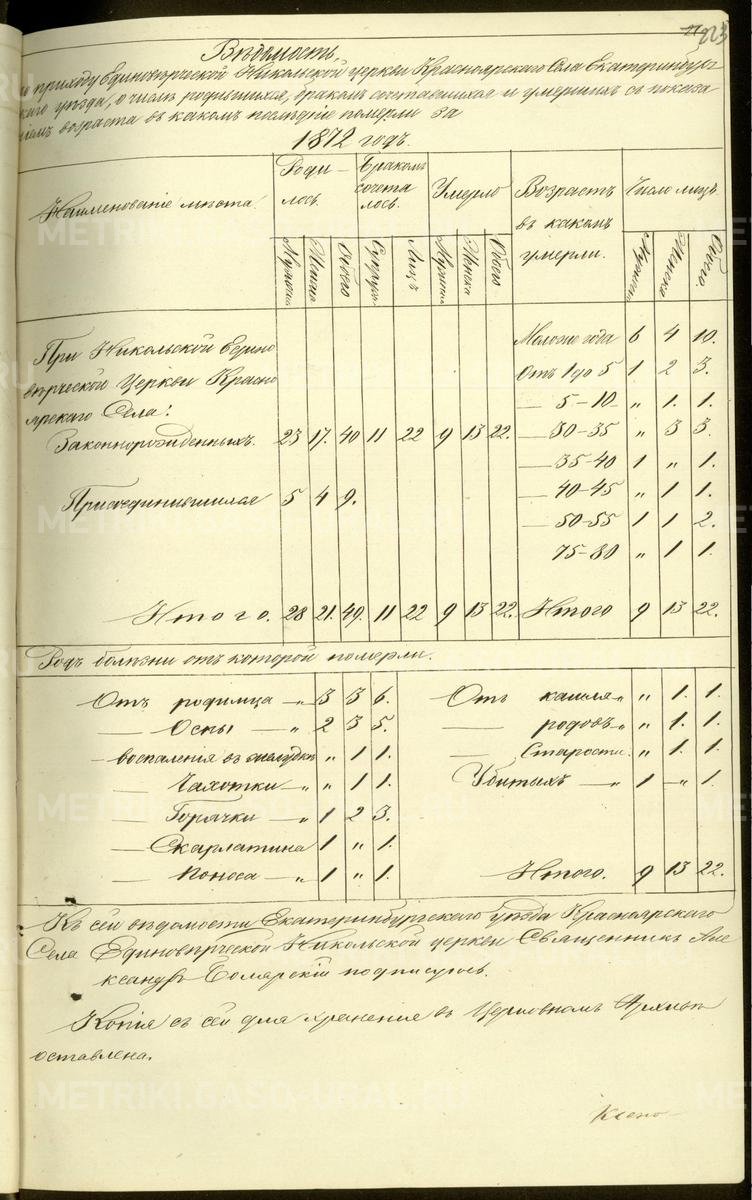 223
Вѣдомость
по приходу Единовѣрческой Никольской церкви Красноярскаго Села Екатеринбург
скаго уѣзда, о числѣ родившихся, бракомъ сочетавшихся и умершихъ съ показа
ніемъ возраста въ какомъ послѣдніе померли за
1872 годъ.
Наименованіе мѣста. Роди-лось. Бракомъ сочета лось. Умерло Возрастъ въ какомъ умерли. Число лицъ.
Мужска Женска Обоего Супруж Лицъ Мужска Женска Обоего Мужска Женска Обоего.
При Никольской Едино
вѣрческой Церкви Красно
ярскаго Села:
Законнорожденныхъ. 23 17. 40 11 22 9 13 22.
Присоединившихся 5 4 9.
Итого. 28 21. 49. 11 22 9 13 22.
Моложе года 6 4 10.
Отъ 1 до 5 1 2 3.
— 5-10 „ 1. 1.
— 30-35 „ 3 3.
— 35-40 1 „ 1.
— 40-45 „ 1 1.
— 50-55 1 1 2.
75-80 „ 1 1.
Итого 9 13 22.
Родъ болѣзни отъ которой померли.
Отъ родимца „ 3 3 6.
— Оспы — „ 2 3 5.
— воспаленія въ желудкѣ „ 1 1.
— Чахотки — „ „ 1 1.
— Горячки — „ 1 2 3.
— Скарлатина 1 „ 1.
— Поноса — „ 1 „ 1.
Отъ кашля „ „ 1. 1.
— родовъ „ „ 1. 1.
— Старости. „ 1. 1.
Убитыхъ — „ 1 — „ 1.
Итого. 9 13 22.
Къ сей вѣдомости Екатеринбургскаго уѣзда Красноярскаго
Села Единовѣрческой Никольской церкви Священникъ Але
ксандръ Боярскій подписуюсь.
Копія съ сей для храненія въ Церковномъ Архивѣ
оставлена.
METRIKI.GASO-URAL.RU